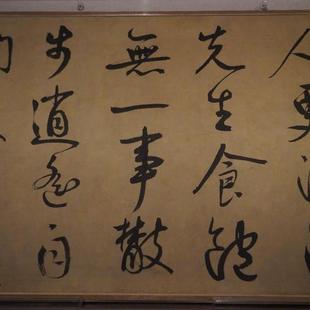 人更
先生食飽
無一事散
步逍遙自